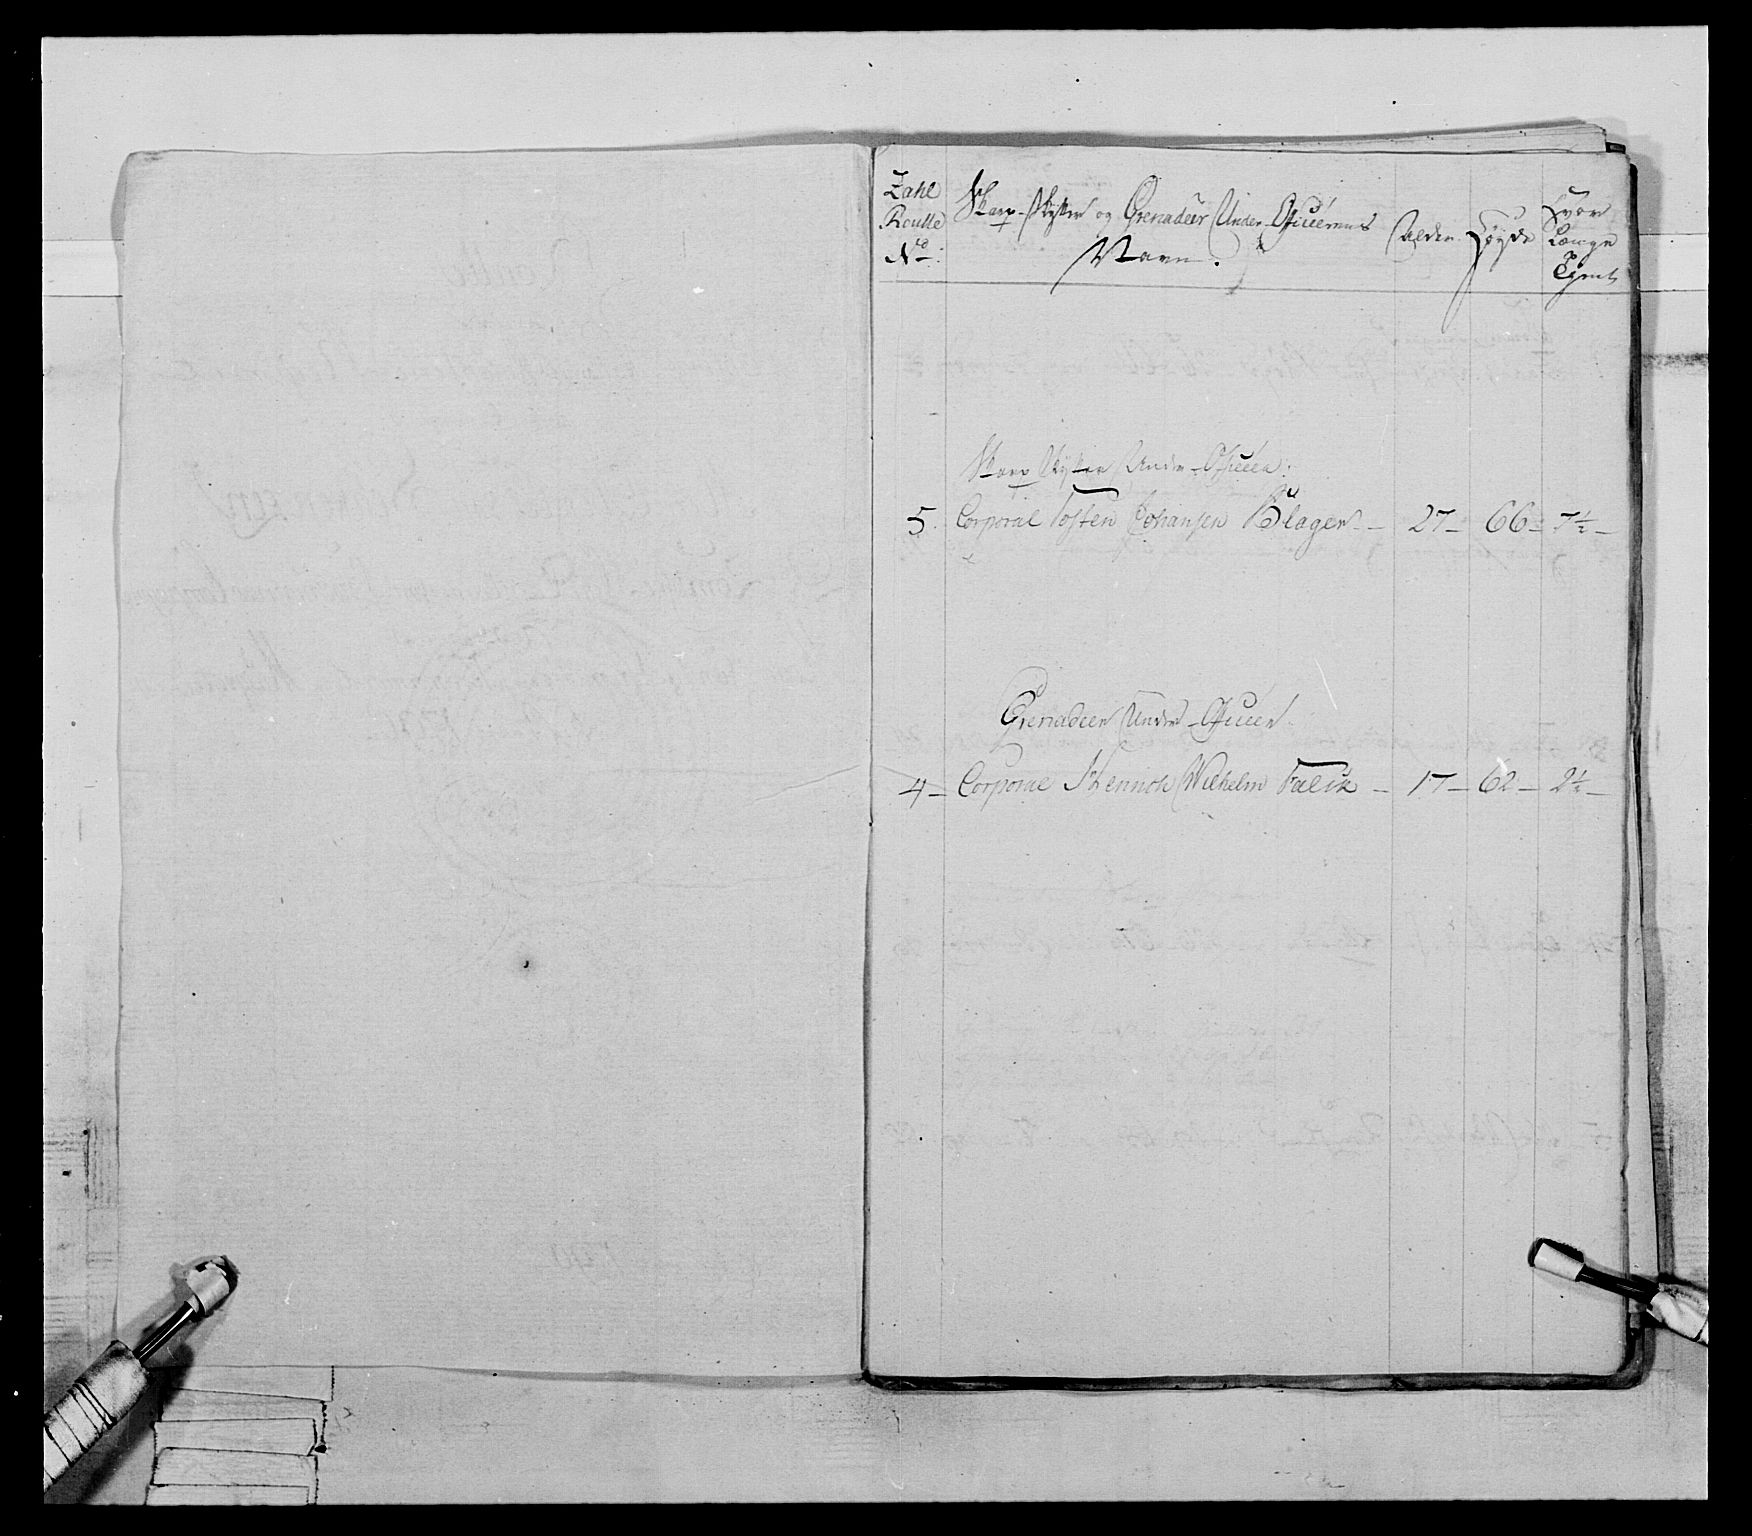 Zahl
Roulle
No:
Skarp-skytter og Grenadeer Under-Officerernes
Navn.
Alder
Høyde
Hvor
Længe
Tient
Skarp Skytter Under-Officeer:
5. Corporal Tosten Johansen Klager - 27 - 66 - 7½ -
Grenadeer Under-Officeer
4 - Corporal Henrich Wilhelm Falck - 17 - 62 - 2½ -